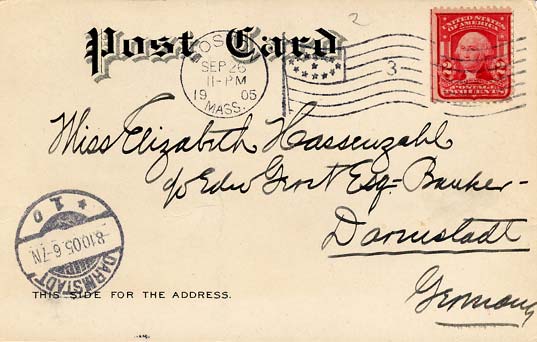 Post Card
2
BOSTON
SEP 26
11-PM
1905
MASS.
3
UNITED STATES
OF AMERICA
2 2
POSTAGE
TWO CENTS
Miss Elizabeth Hassenzahl
c/o Edw Grost Esq= Banker-
Darmstadt
Germany
* 1 0
8.10.05.6-7N
DARMSTADT
THIS SIDE FOR THE ADDRESS.